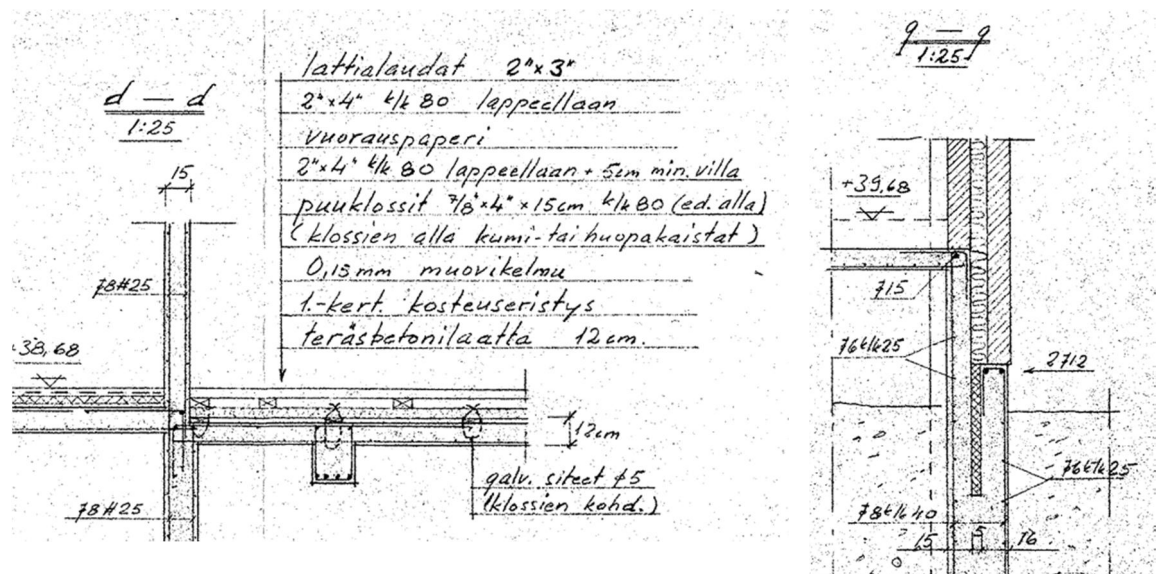 d — d
1:25
15
lattialaudat 2"x3"
2"x4" k/k 80 lappeellaan
vuorauspaperi
2"x4" k/k 80 lappeellaan + 5cm min. villa
puuklossit 7/8"x4"x15cm k/k 80 (ed. alla)
(klossien alla kumi- tai huopakaistat)
0,15 mm muovikelmu
1.-kert. kosteuseristys
teräsbetonilaatta 12 cm.
78#25
38,68
12cm
galv. siteet ø5
(klossien kohd.)
78#25
g — g
1:25
+39,68
715
76k/k25
2712
76k/k25
78k/k40
15
5
16